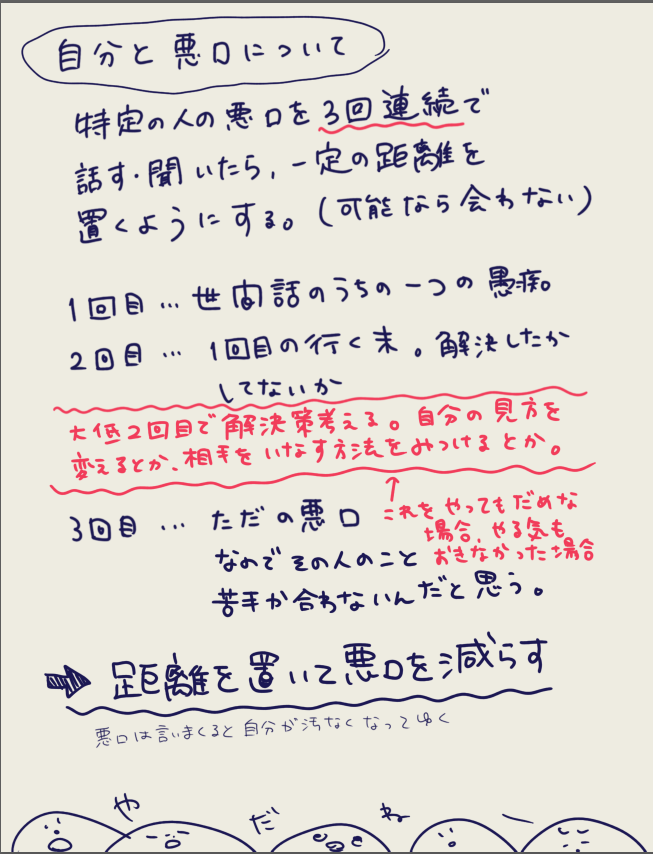 自分と悪口について
特定の人の悪口を3回連続で
話す・聞いたら、一定の距離を
置くようにする。(可能なら会わない)
1回目…世間話のうちの一つの愚痴。
2回目…1回目の行く末。解決したか
してないか
大低2回目で解決策考える。自分の見方を
変えるとか、相手をいなす方法をみつけるとか。
↑
これをやってもだめな
場合、やる気も
おきなかった場合
3回目…ただの悪口
なのでその人のこと
苦手か合わないんだと思う。
➡ 距離を置いて悪口を減らす
悪口は言いまくると自分が汚なくなってゆく
やだねー